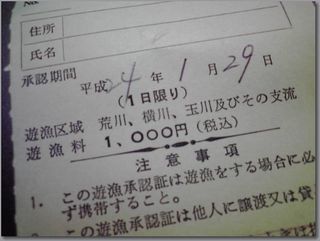 No.
住所
氏名
承認期間
平成24年1月29日
(1日限り)
遊漁区域 荒川、横川、玉川及びその支流
遊漁料 1,000円(税込)
注意事項
1. この遊漁承認証は遊漁をする場合に必
ず携帯すること。
この遊漁承認証は他人に譲渡又は貸